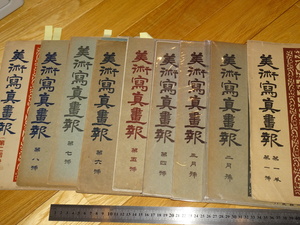 美術寫真畫報
第一卷 第一號
美術寫真畫報
二月號
美術寫真畫報
三月號
美術寫真畫報
第四號
美術寫真畫報
第五號
美術寫真畫報
第六號
美術寫真畫報
第七號
美術寫真畫報
第八號
美術寫真畫報